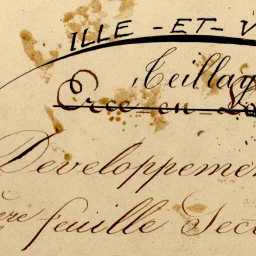 ILLE - ET - V
Teillag
Ercé en La
Développemen
ère feuille Sec